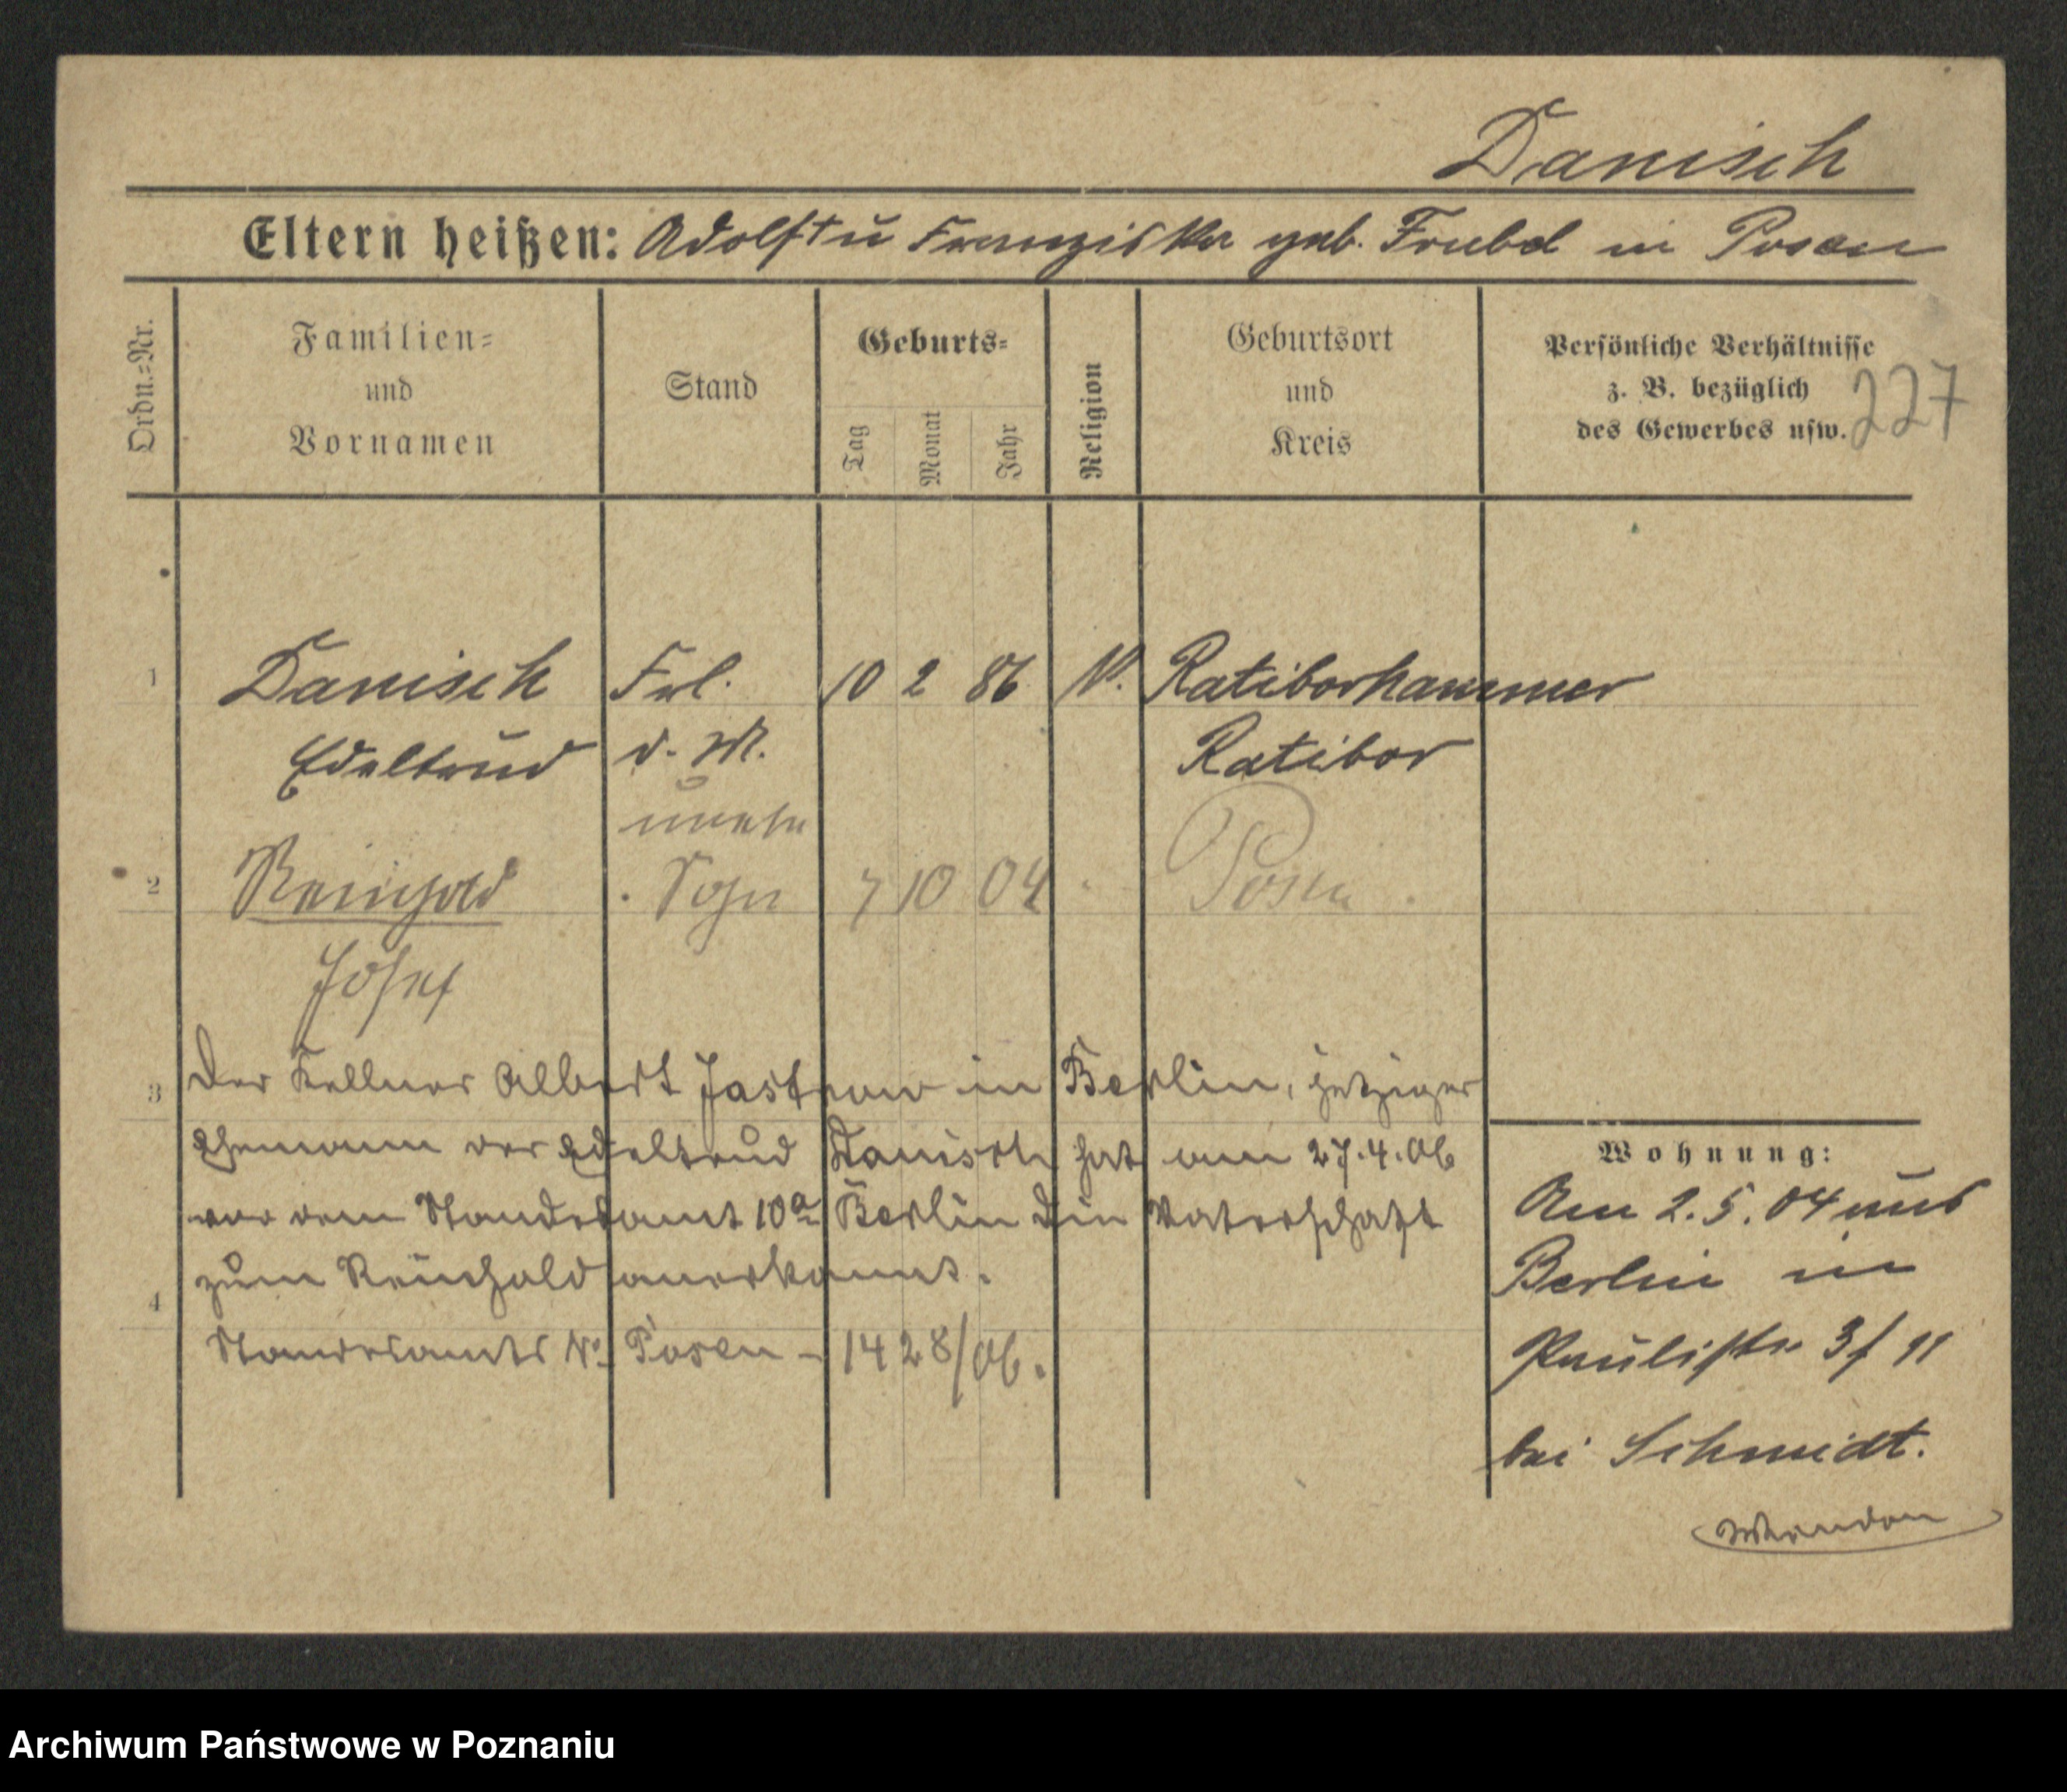 Danisch
Eltern heißen: Adolf † u Franziska geb. in Posen
Ordn.-Nr.
Familien-
und
Vornamen
Stand
Geburts-
Tag
Monat
Jahr
Religion
Geburtsort
und
Kreis
Persönliche Verhältnisse
z. B. bezüglich
des Gewerbes usw.
227
1 Danisch Frl. 10 2 86 Ratiborhammer
Edeltrud d. M. Ratibor
unehe
2 Reinhold Sohn 7 10 04 Posen
Josef
3 Der Kellner Albert Jastrow in Berlin, jetziger
Ehemann der Edeltrud Danisch hat am 27.4.06
vor dem Standesamt 10a Berlin die Vaterschaft
zum Reinhold anerkannt.
4
Standesamt Posen - 1428/06.
Wohnung:
Am 2.5.04 aus
Berlin in
Paulistr. 3 f 11
bei Schmidt.
Archiwum Państwowe w Poznaniu